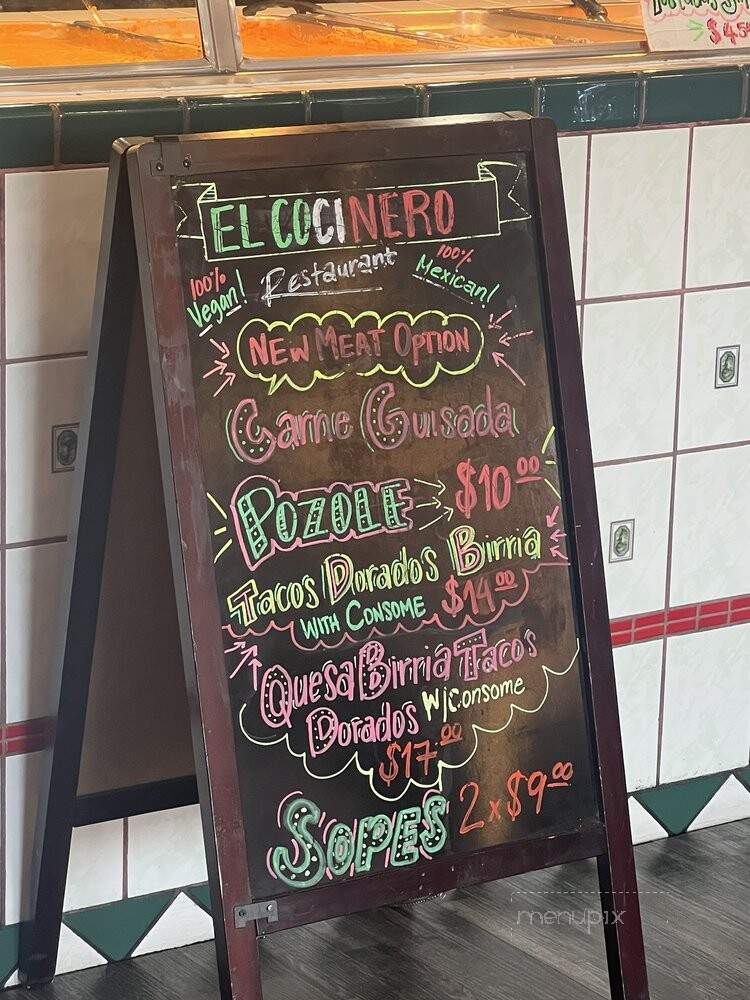 $4.5
EL COCINERO
100% Vegan!
Restaurant
100% Mexican!
NEW MEAT OPTION
Carne Guisada
POZOLE $10.00
Tacos Dorados Birria
WITH CONSOME $14.00
QuesaBirria Tacos
Dorados W/Consome
$17.00
SOPES 2 x $9.00
menupix